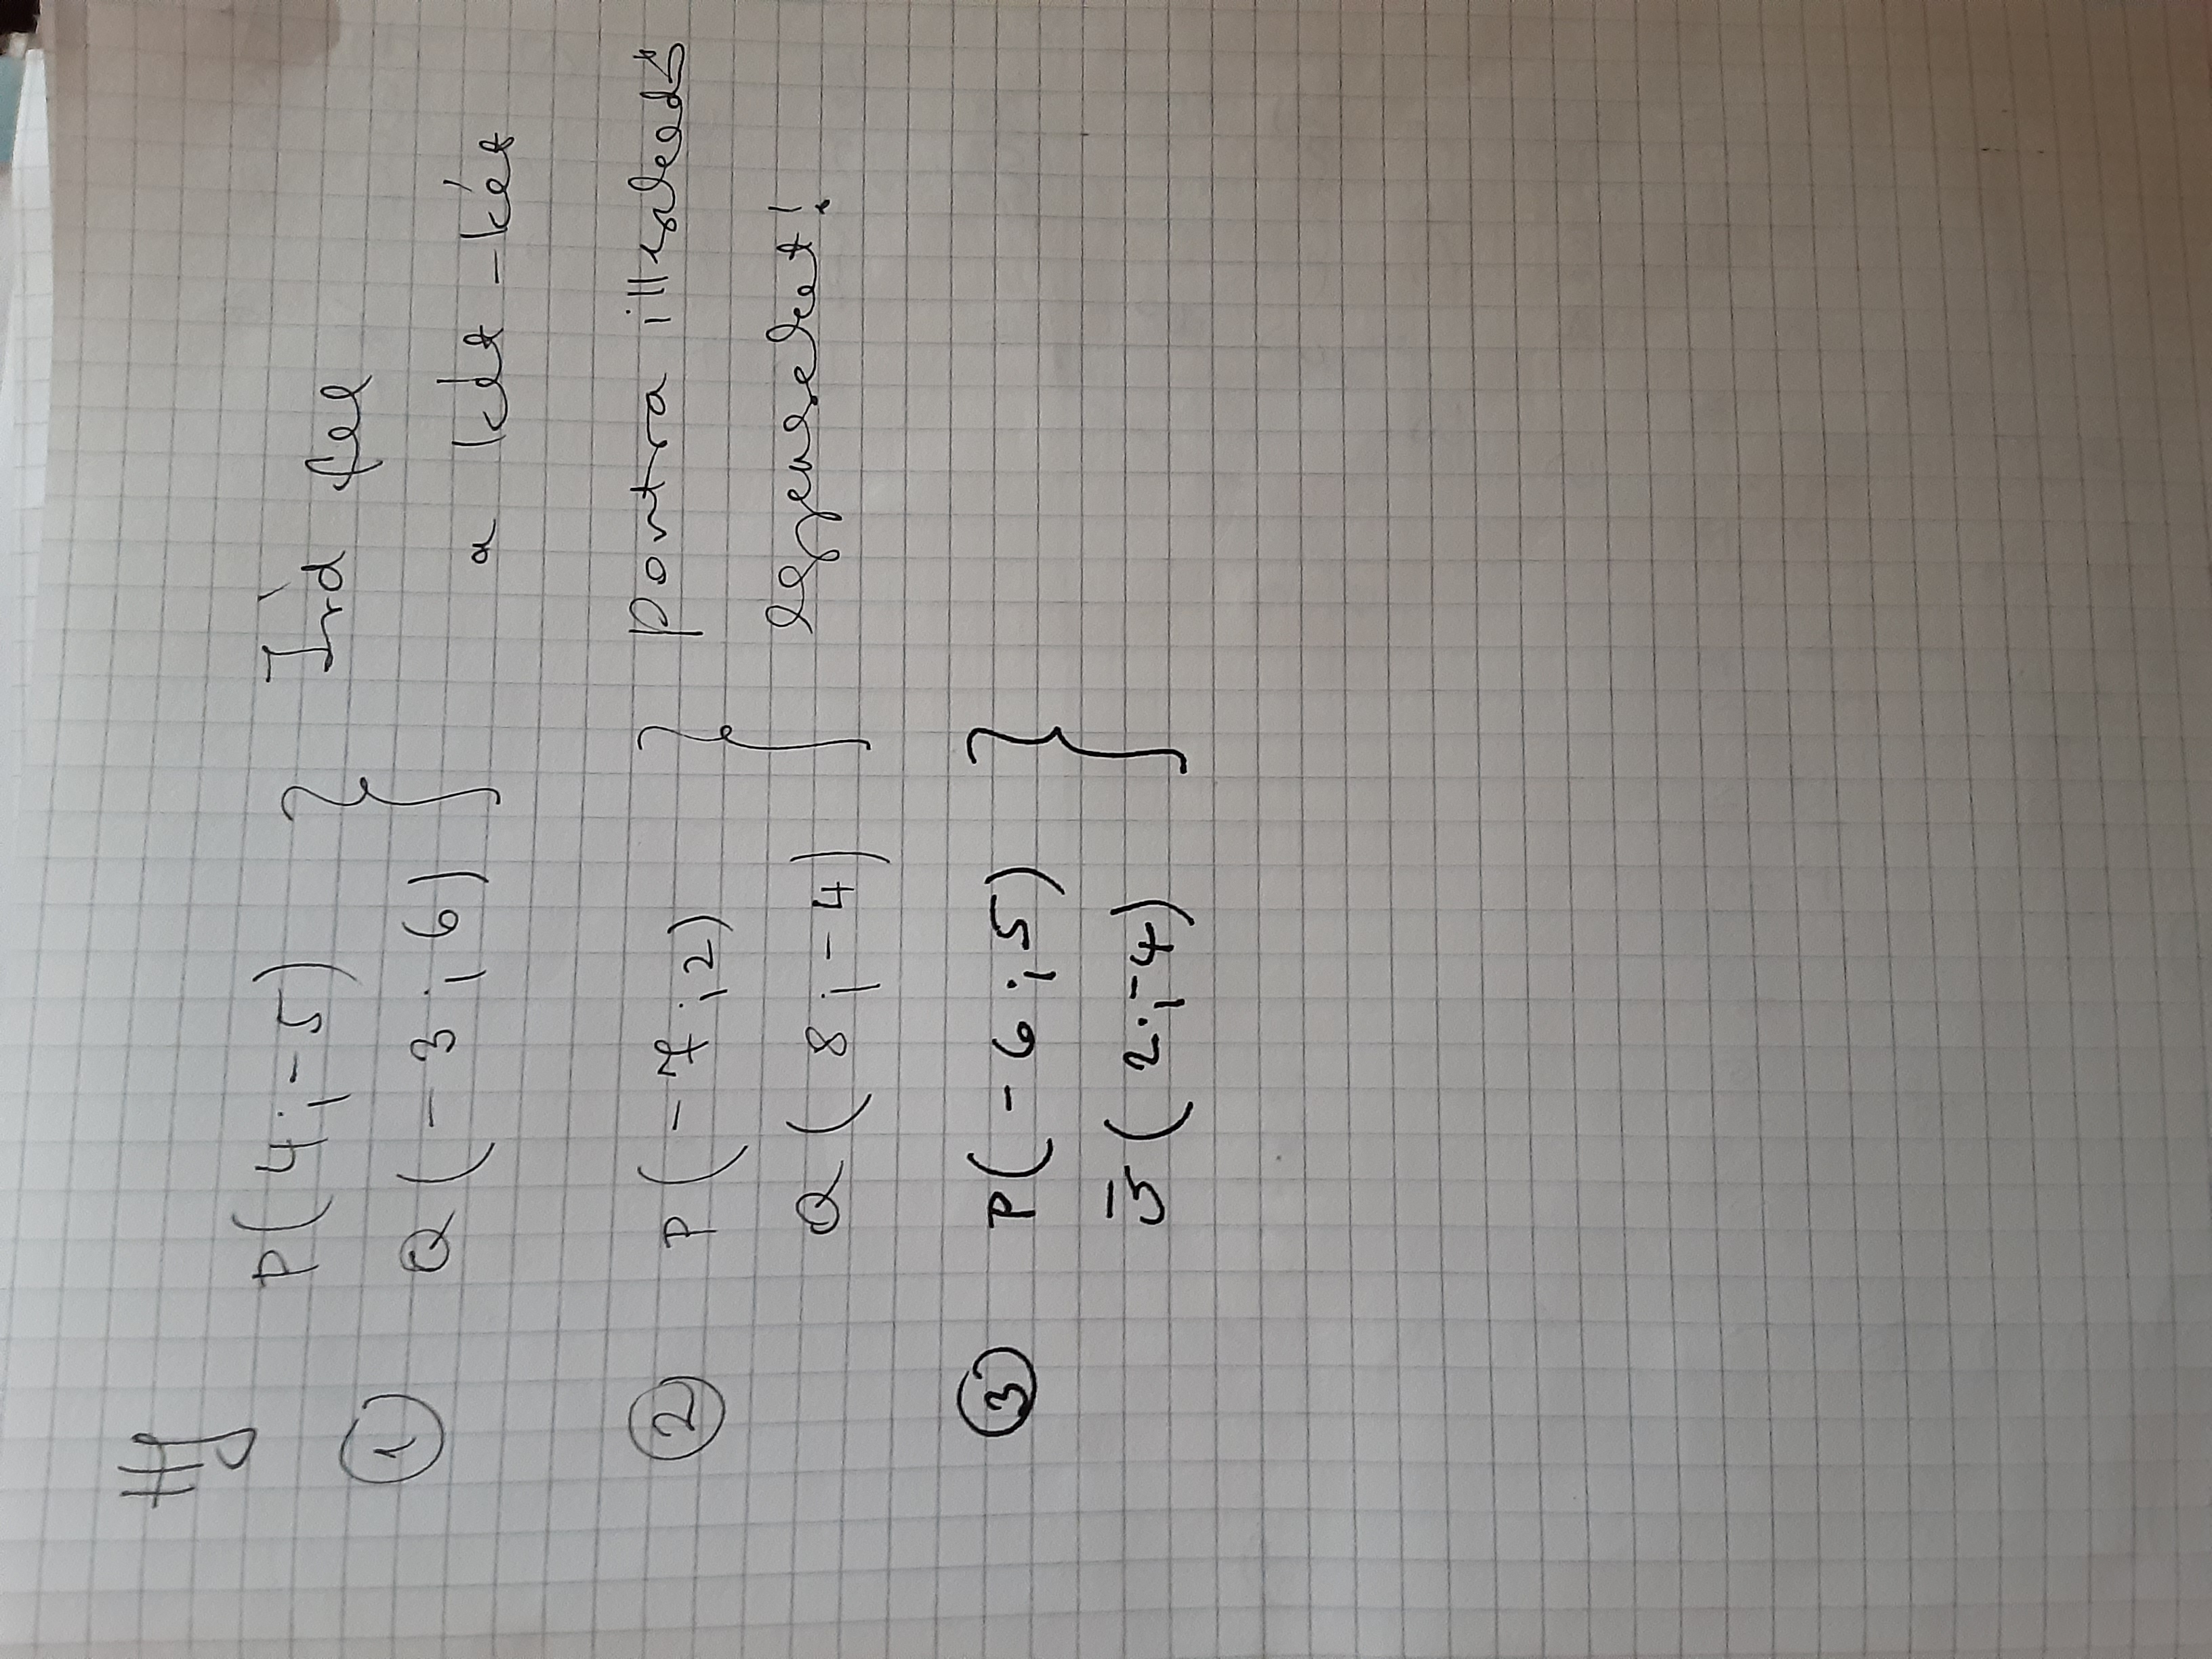 Hf
① P(4;-5) } Írd fel
Q(-3;6) a két-két
② P(-7;2) } pontra illeszkedő
Q(8;-4) egyenest!
③ P(-6;5) }
v̅(2;-4)